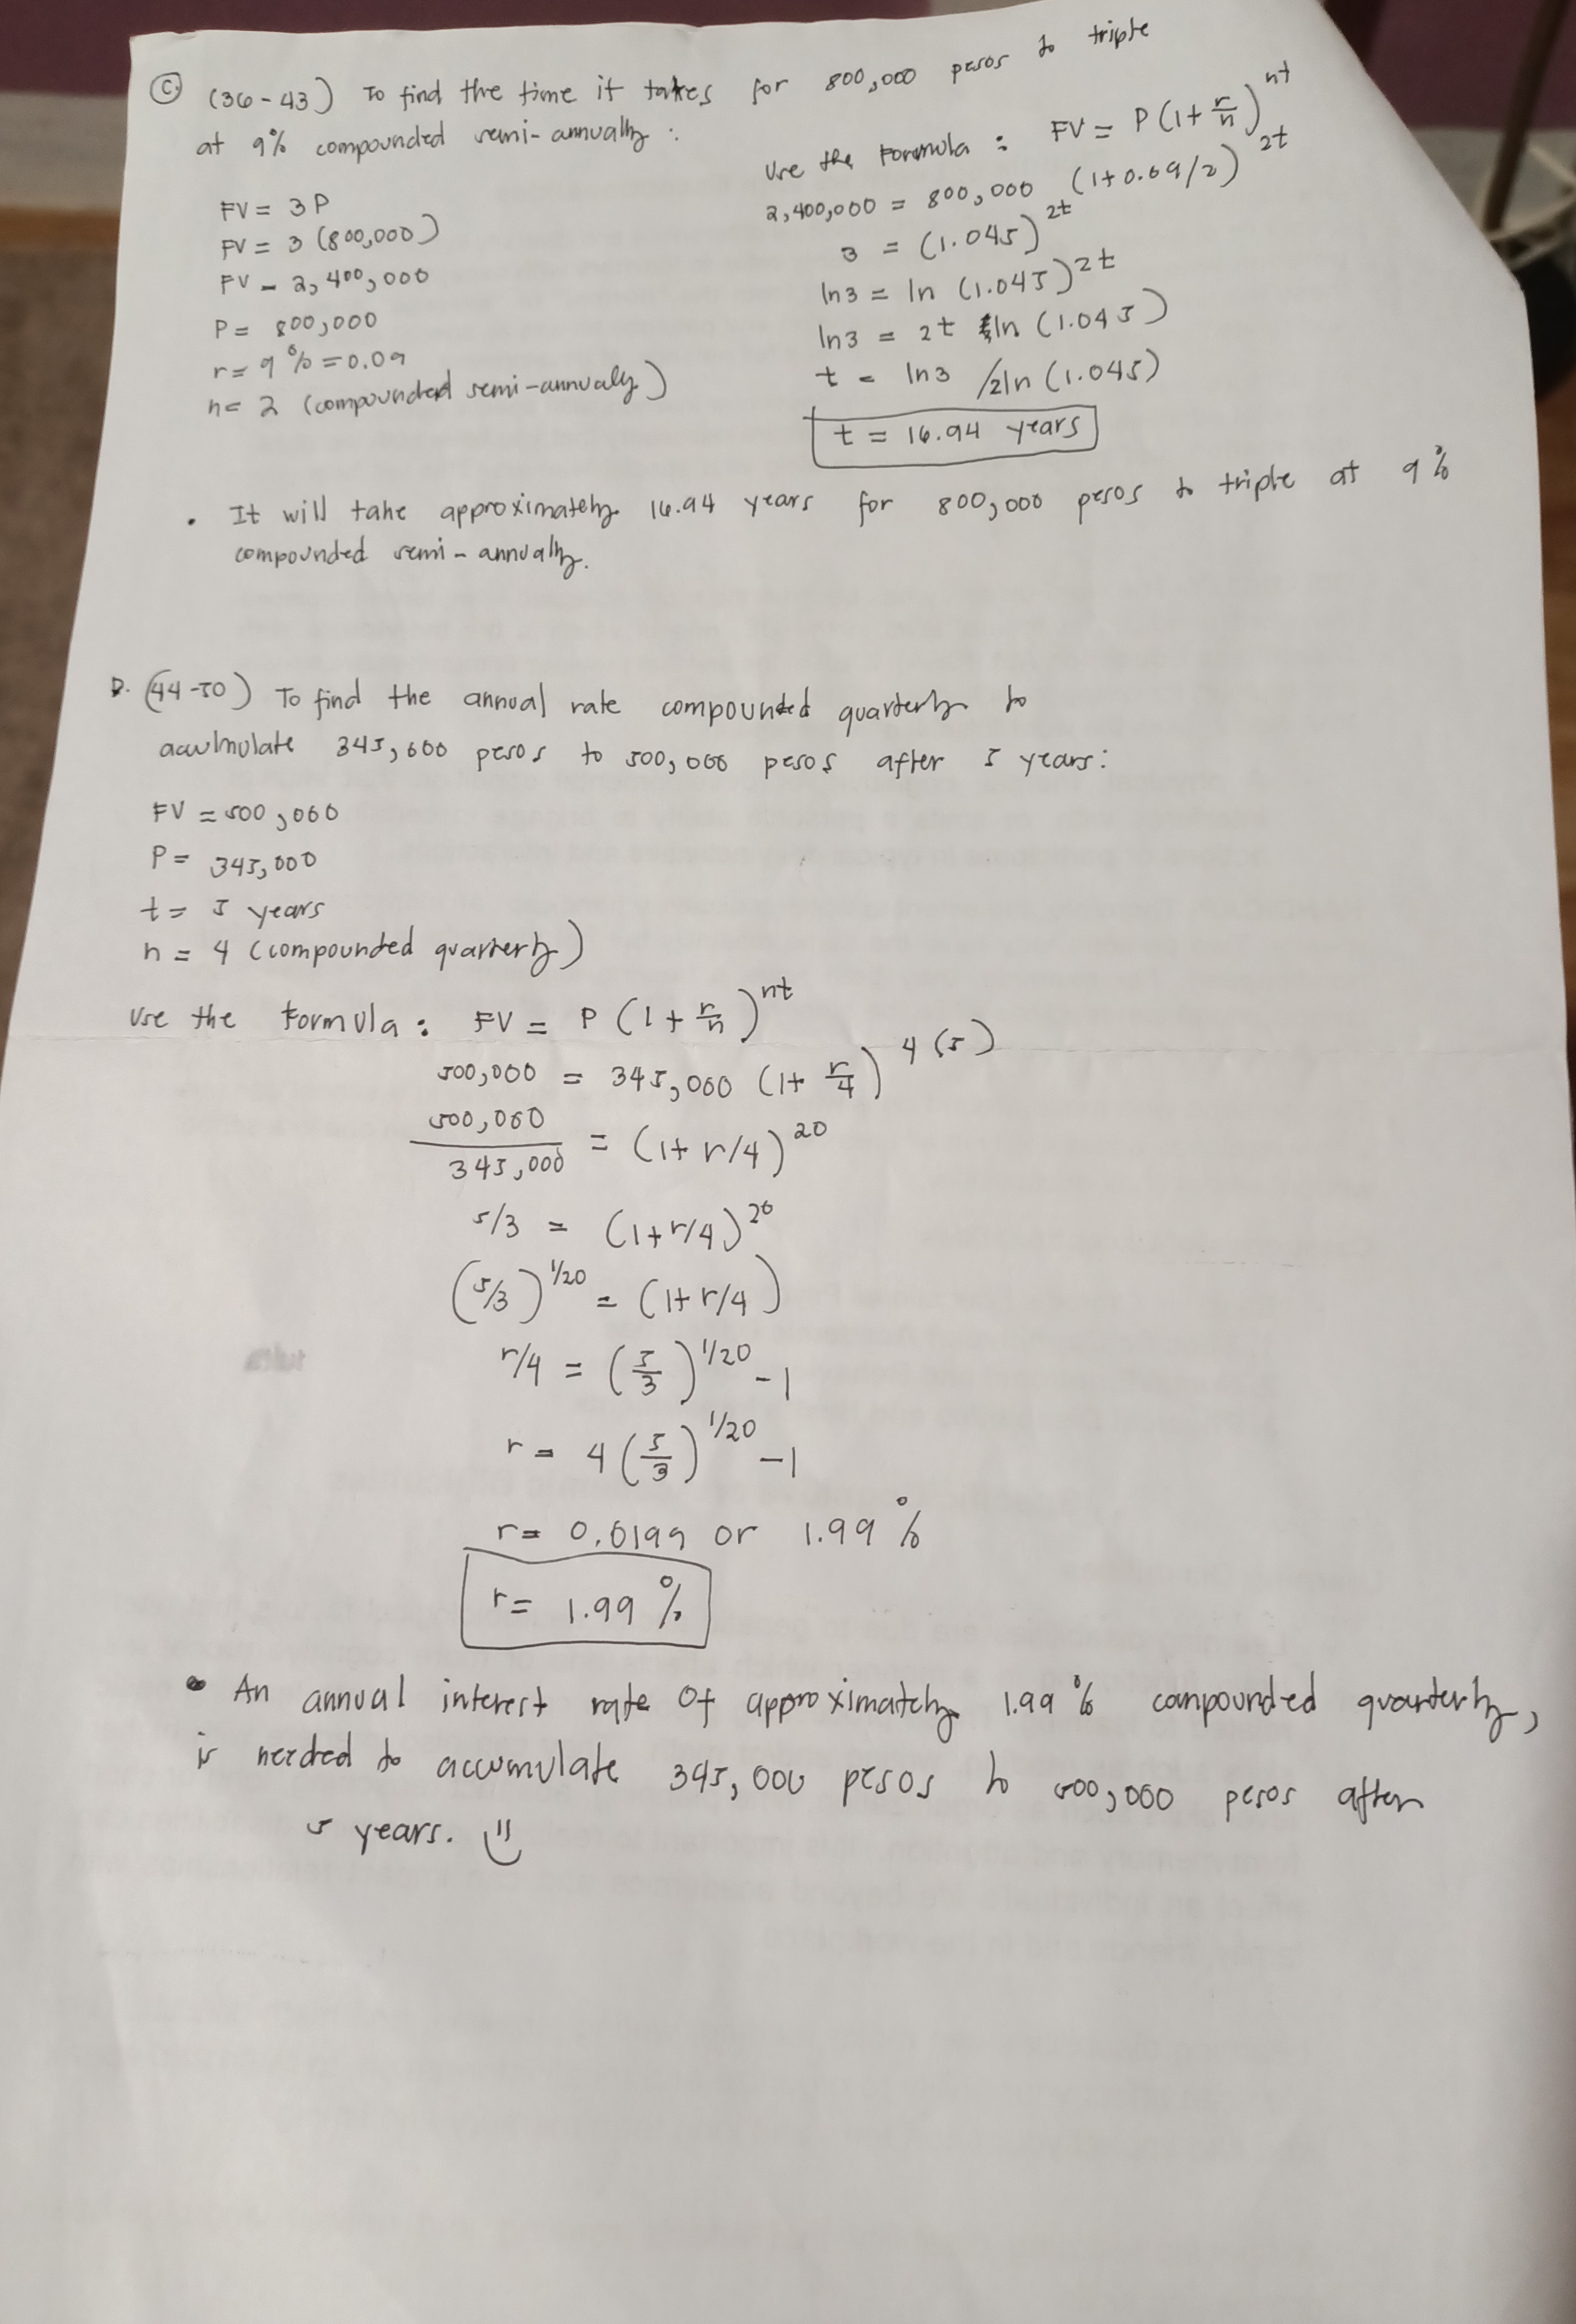 C. (36-43) To find the time it takes for 800,000 pesos to triple
at 9% compounded semi-annually :
FV = 3P
FV = 3 (800,000)
FV = 2,400,000
P = 800,000
r = 9% = 0.09
n = 2 (compounded semi-annualy)
Use the Formula : FV = P(1 + r/n)^nt
2,400,000 = 800,000 (1+0.09/2)^2t
3 = (1.045)^2t
ln3 = ln (1.045)^2t
ln3 = 2t ln (1.045)
t = ln3 /2ln (1.045)
t = 16.94 years
• It will take approximately 16.94 years for 800,000 pesos to triple at 9%
compounded semi-annually.
D. (44-50) To find the annual rate compounded quarterly to
accumulate 345,000 pesos to 500,000 pesos after 5 years:
FV = 500,000
P = 345,000
t = 5 years
n = 4 (compounded quarterly)
Use the Formula : FV = P (1 + r/n)^nt
500,000 = 345,000 (1+ r/4)^4(5)
500,000/345,000 = (1+ r/4)^20
5/3 = (1+r/4)^20
(5/3)^1/20 = (1+ r/4)
r/4 = (5/3)^1/20 - 1
r = 4 (5/3)^1/20 - 1
r = 0.0199 or 1.99%
r = 1.99 %
• An annual interest rate Of approximately 1.99% compounded quarterly,
is needed to accumulate 345,000 pesos to 500,000 pesos after
5 years.